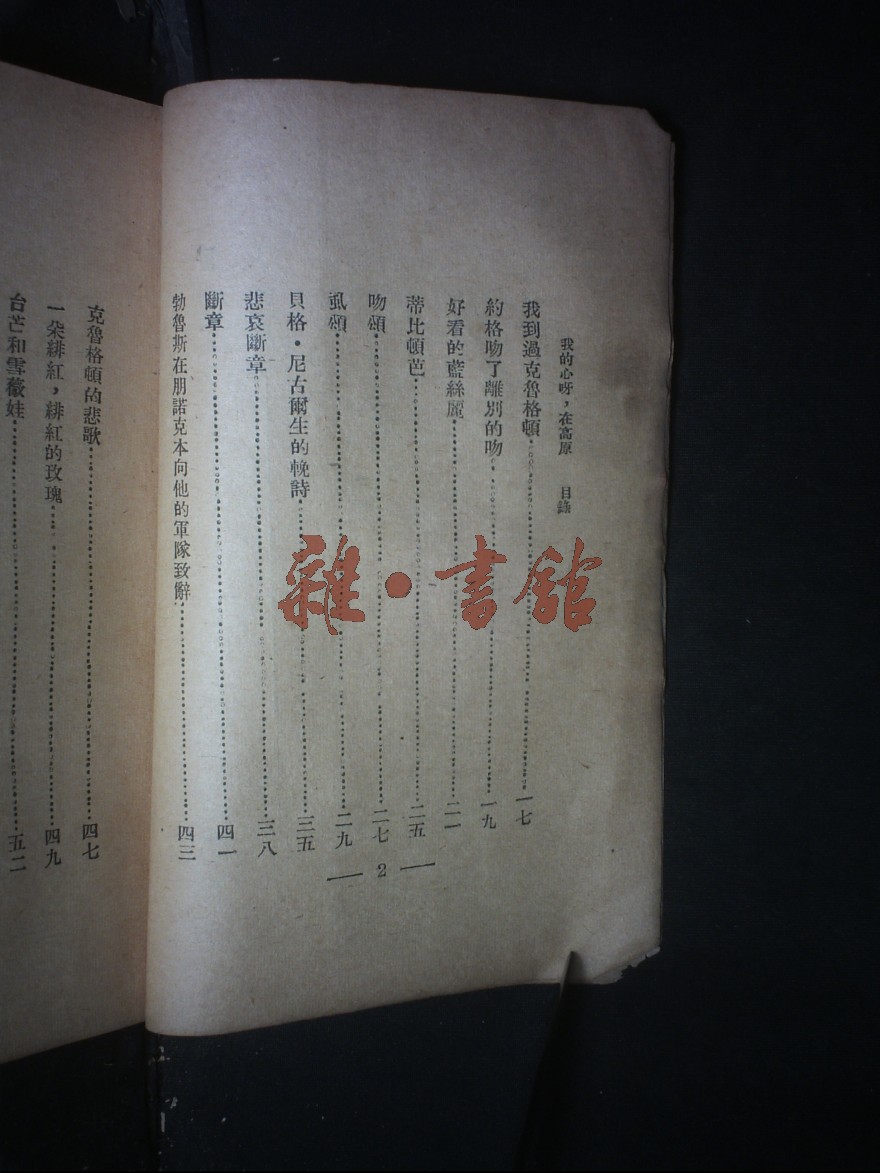 我的心呀，在高原　目錄
我到過克魯格頓…………一七
約格吻了離別的吻…………一九
好看的藍絲麗…………二一
蒂比頓芭…………二五
吻頌…………二七
虱頌…………二九
貝格・尼古爾生的輓詩…………三五
悲哀斷章…………三八
斷章…………四一
勃魯斯在朋諾克本向他的軍隊致辭…………四三
— 2 —
克魯格頓的悲歌…………四七
一朵緋紅，緋紅的玫瑰…………四九
台芒和雪薇娃…………五二
雜・書館